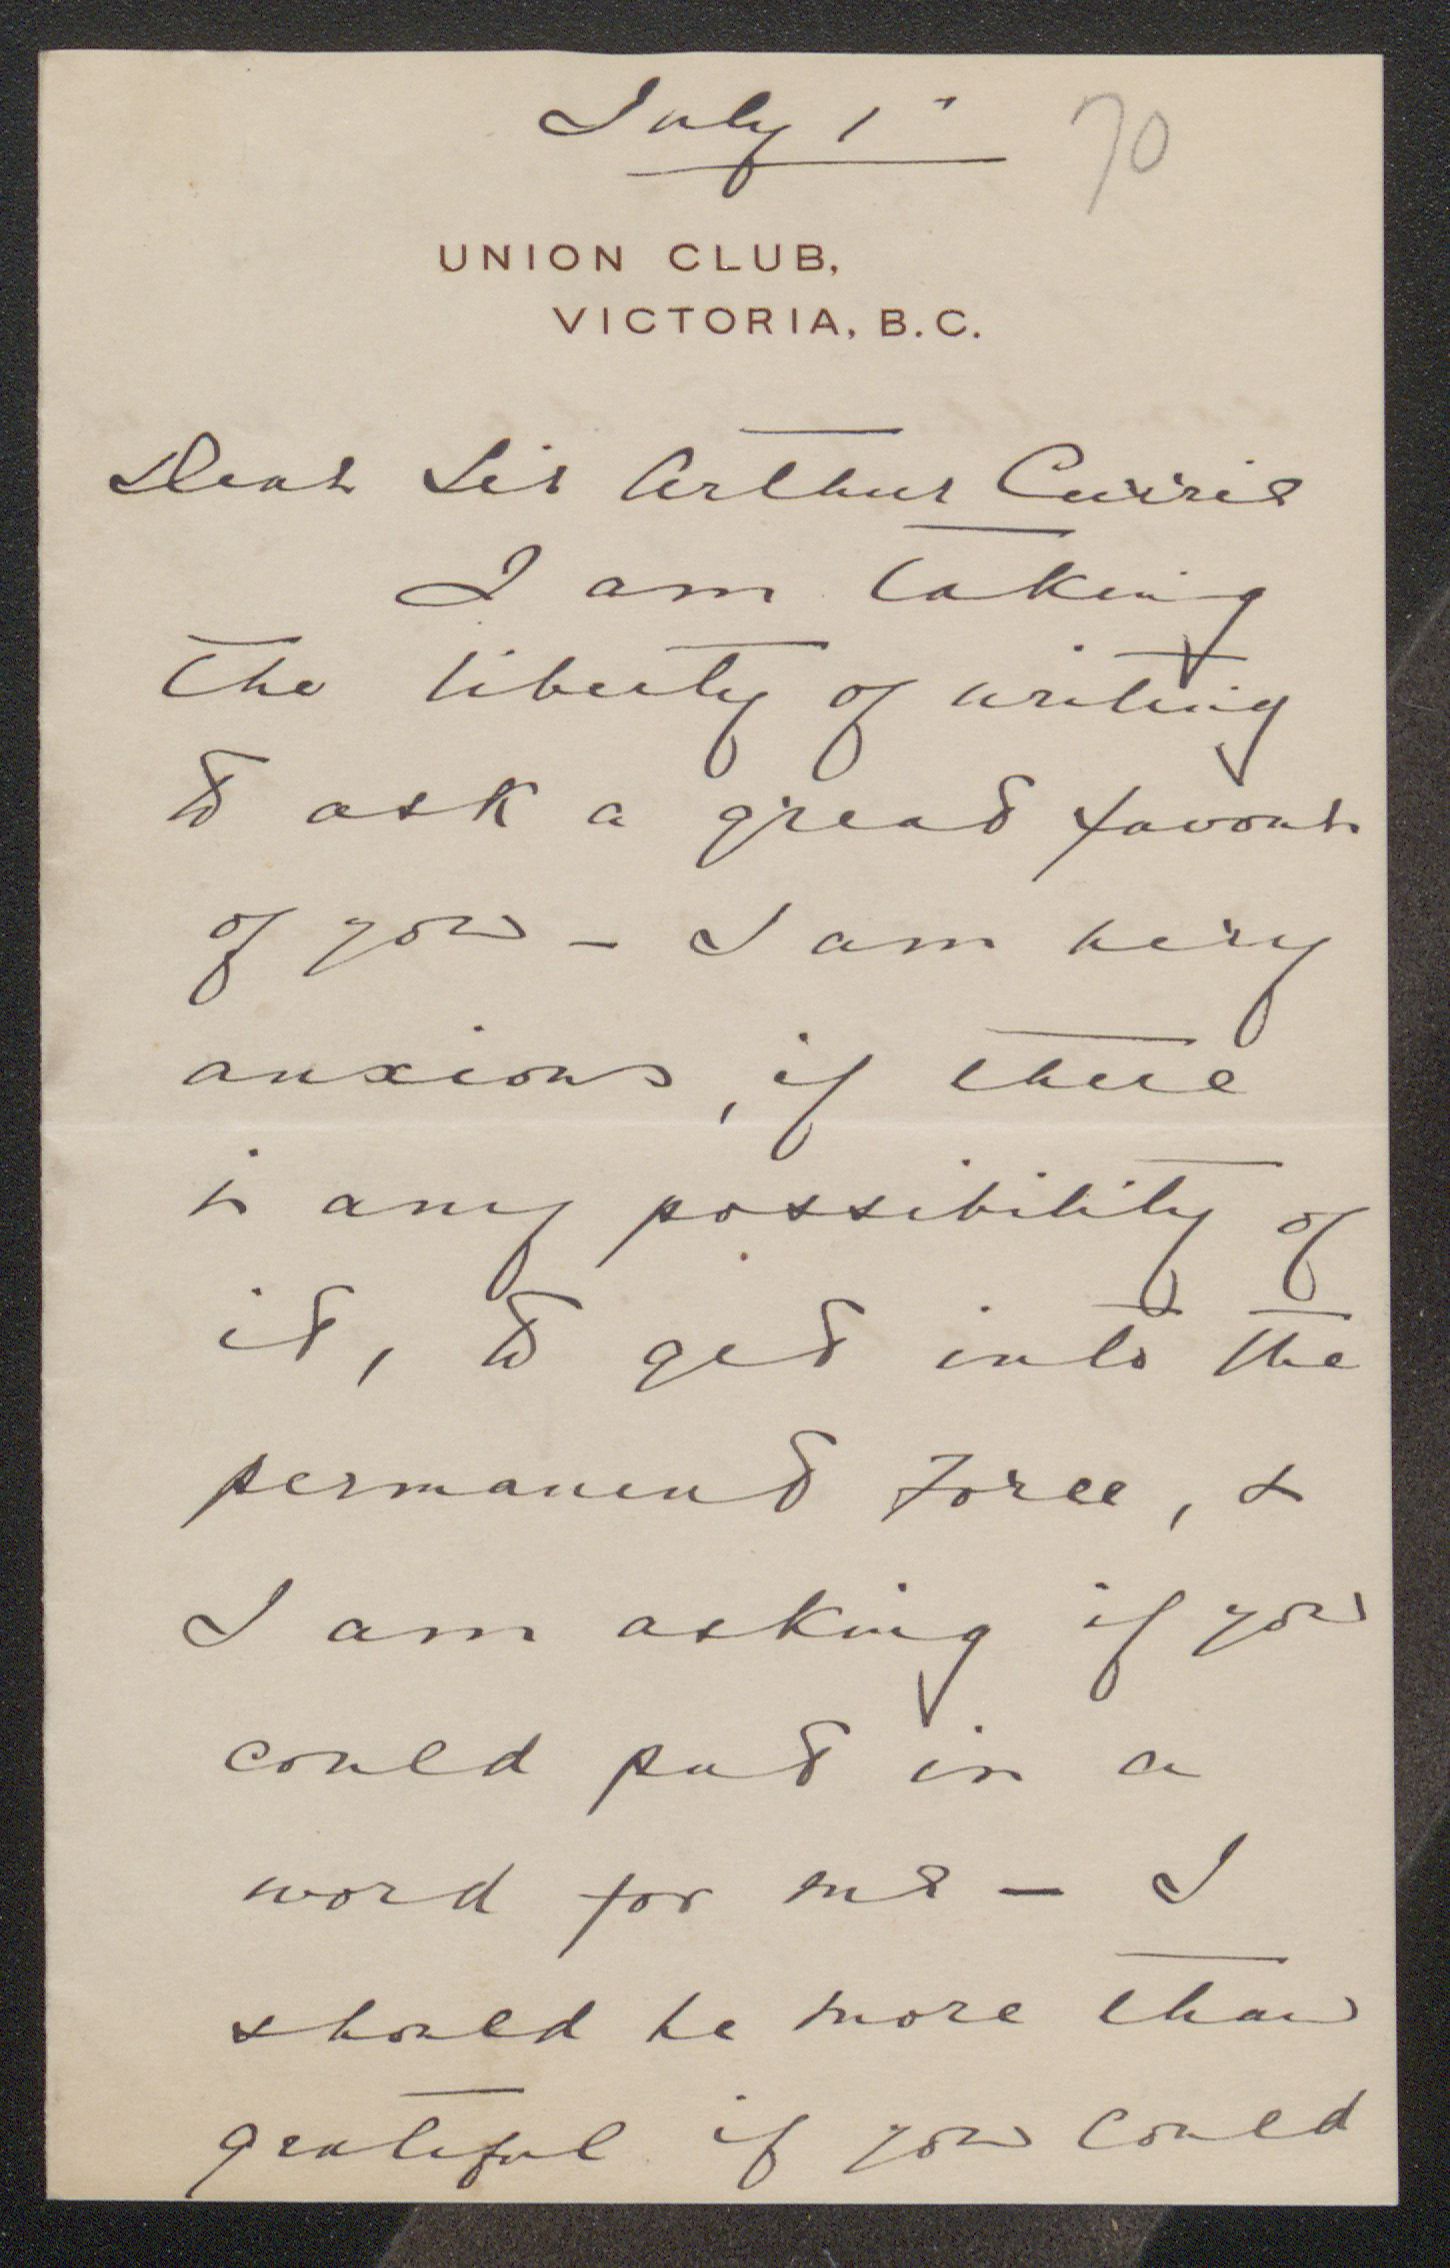 July 1st
70
UNION CLUB,
VICTORIA, B.C.
Dear Sir Arthur Currie
I am taking
the liberty of writing
to ask a great favour
of you – I am very
anxious, if there
is any possibility of
it, to get into the
permanent force, &
I am asking if you
could put in a
word for me – I
should be more than
grateful if you could